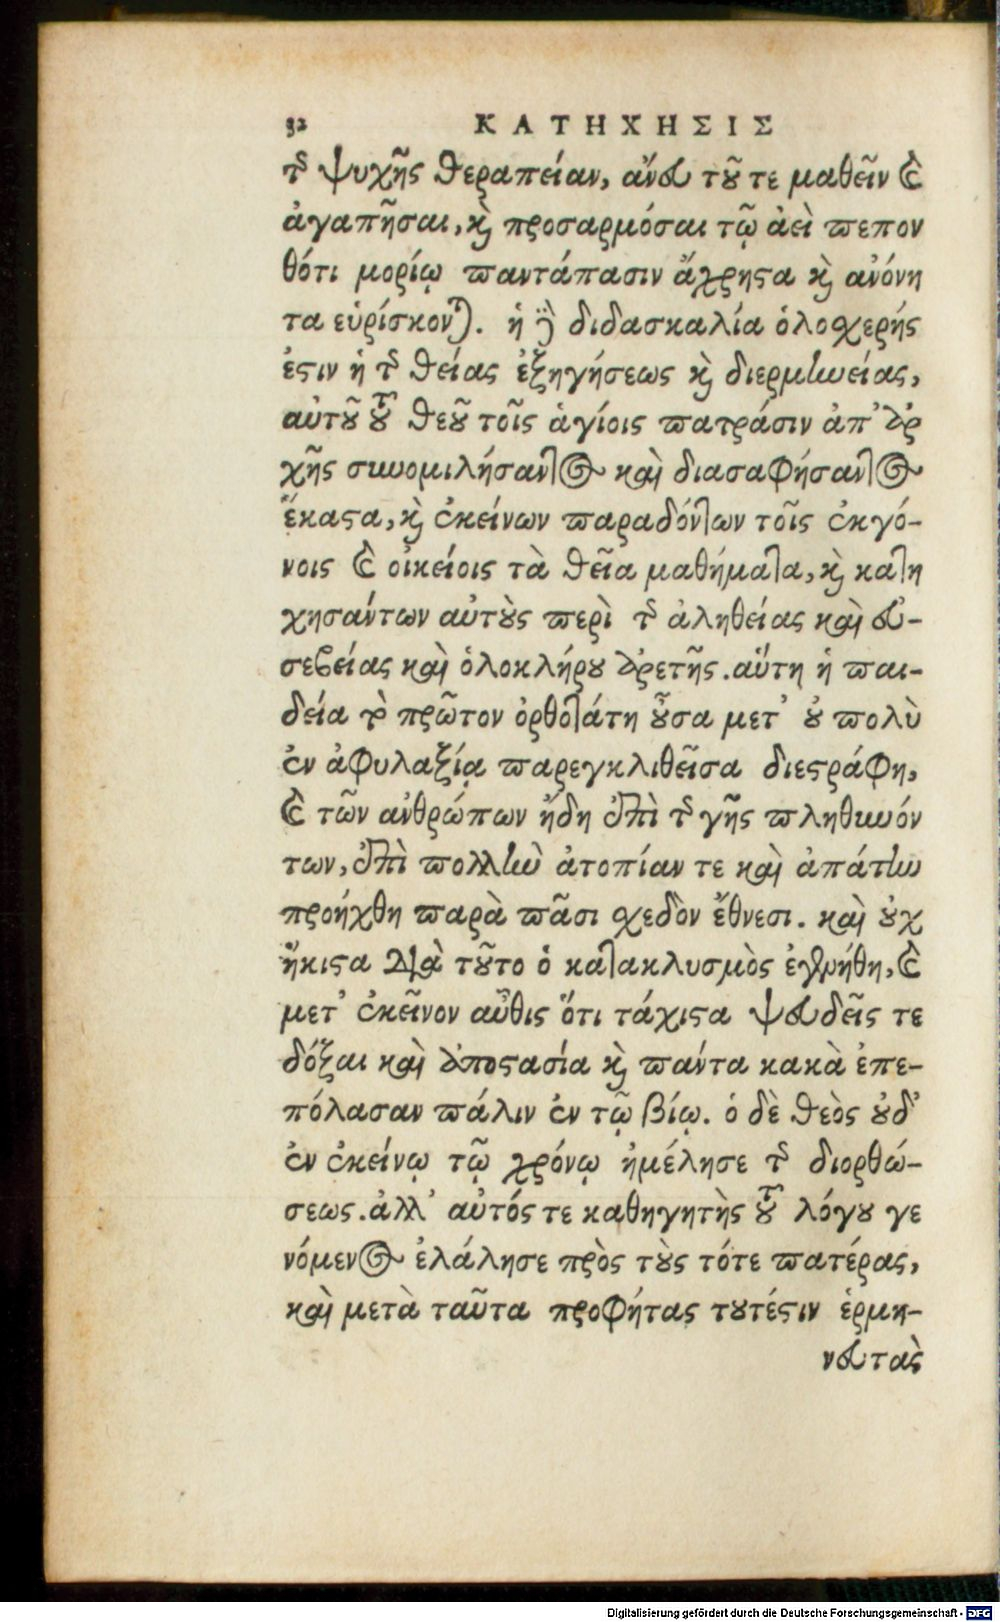 92 ΚΑΤΗΧΗΣΙΣ
τῆς ψυχῆς θεραπείαν, ἄνευ τοῦ τε μαθεῖν καὶ
ἀγαπῆσαι, καὶ προσαρμόσαι τῷ ἀεὶ πεπον
θότι μορίῳ παντάπασιν ἄχρηστα καὶ ἀνόνη
τα εὑρίσκονται. ἡ δὲ διδασκαλία ὁλοχερής
ἐστιν ἡ τῆς θείας ἐξηγήσεως καὶ διερμηνείας,
αὐτοῦ τοῦ θεοῦ τοῖς ἁγίοις πατράσιν ἀπ' ἀρ
χῆς συνομιλήσαντος καὶ διασαφήσαντος
ἕκαστα, καὶ ἐκείνων παραδόντων τοῖς ἐκγό-
νοις καὶ οἰκείοις τὰ θεῖα μαθήματα, καὶ κατη
χησάντων αὐτοὺς περὶ τῆς ἀληθείας καὶ εὐ-
σεβείας καὶ ὁλοκλήρου ἀρετῆς. αὕτη ἡ παι-
δεία τὸ πρῶτον ὀρθοτάτη οὖσα μετ' οὐ πολὺ
ἐν ἀφυλαξίᾳ παρεγκλιθεῖσα διεστράφη,
καὶ τῶν ἀνθρώπων ἤδη ἐπὶ τῆς γῆς πληθυνόν
των, ἐπὶ πολλὴν ἀτοπίαν τε καὶ ἀπάτην
προήχθη παρὰ πᾶσι σχεδὸν ἔθνεσι. καὶ οὐχ
ἥκιστα διὰ τοῦτο ὁ κατακλυσμὸς ἐγενήθη, καὶ
μετ' ἐκεῖνον αὖθις ὅτι τάχιστα ψευδεῖς τε
δόξαι καὶ ἀποστασία καὶ πάντα κακὰ ἐπε-
πόλασαν πάλιν ἐν τῷ βίῳ. ὁ δὲ θεὸς οὐδ'
ἐν ἐκείνῳ τῷ χρόνῳ ἠμέλησε τῆς διορθώ-
σεως. ἀλλ' αὐτός τε καθηγητὴς τοῦ λόγου γε
νόμενος ἐλάλησε πρὸς τοὺς τότε πατέρας,
καὶ μετὰ ταῦτα προφήτας τουτέστιν ἑρμη-
νευτὰς
Digitalisierung gefördert durch die Deutsche Forschungsgemeinschaft - DFG